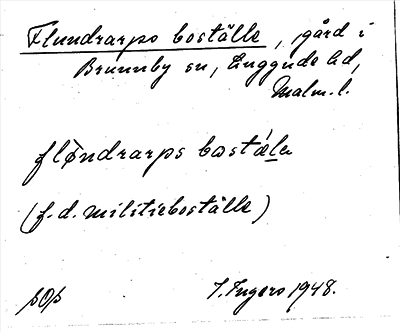 Flundrarps boställe, gård i
Brunnby sn, Luggude hd,
Malm.l.
fløndrarps bostæla
(f.d. militieboställe)
pop
I. Ingers 1948.